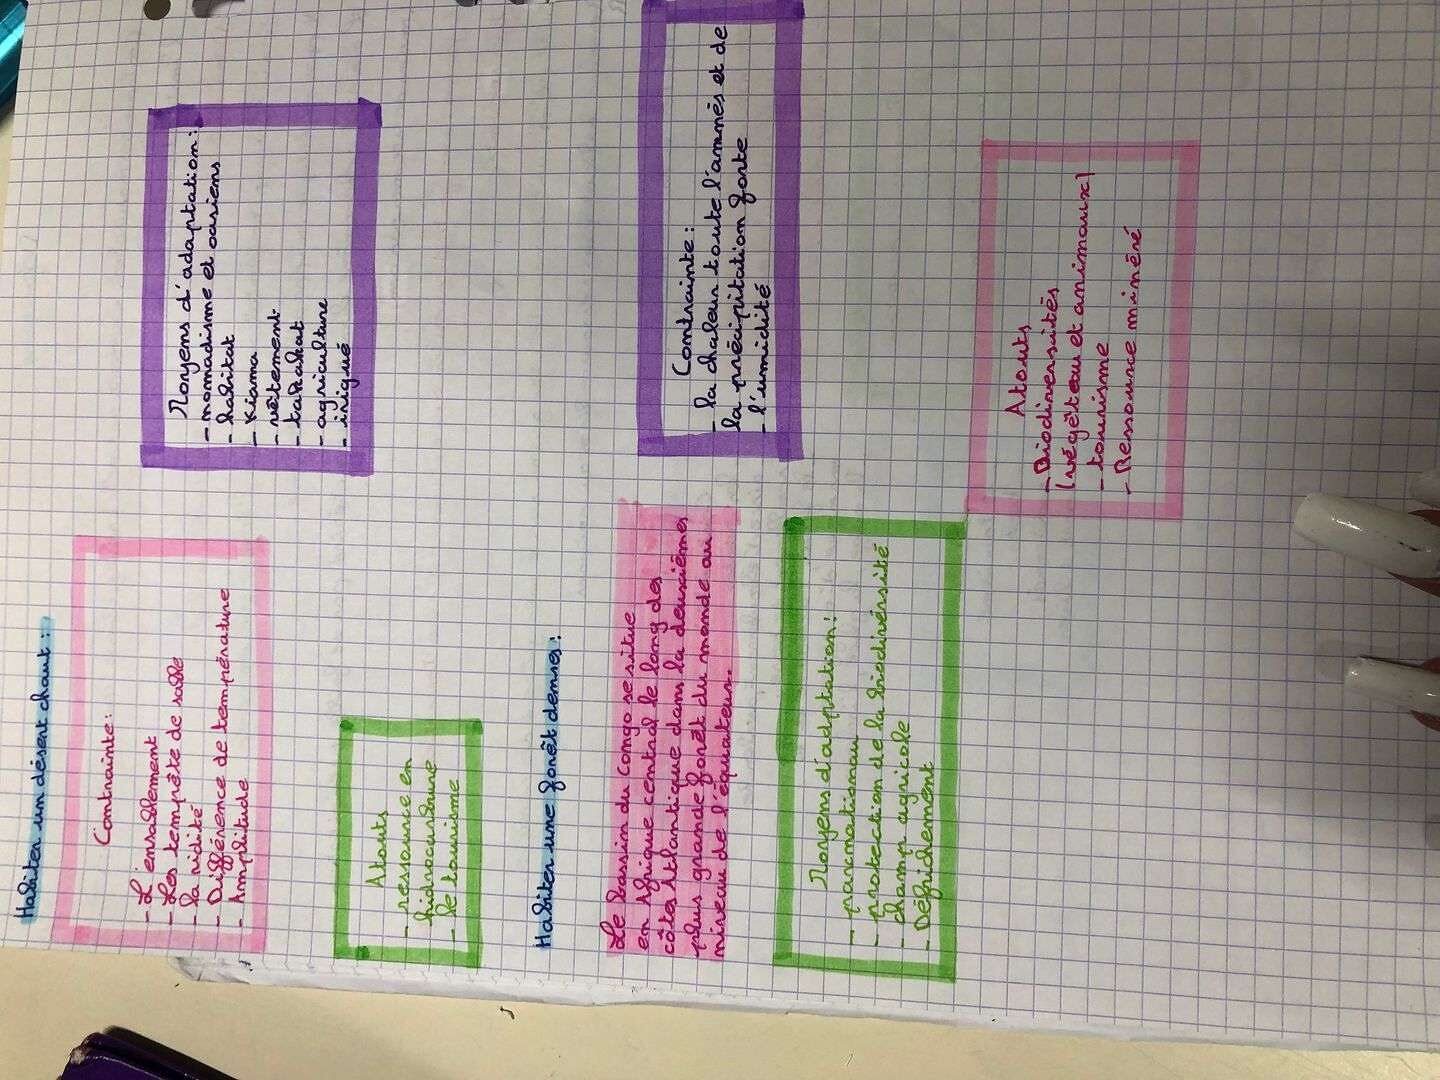 Habiter un désert chaut :
Contrainte :
- L'ensablement
- Les tempête de sable
- la ridité
- Différence de température
- Amplitude
Moyens d'adaptation :
- nomadisme et oasiens
- habitat
- Kiama
- vêtement
- takakat
- agriculture
- iriqué
Atouts
- ressource en
hidrocurbure
- le tourisme
Habiter une forêt denses :
Le bassin du Congo se situe
en Afrique central le long des
côtes Atlantique dans la deuxièmes
plus grande forêt du monde au
niveau de l'équateur.
Contrainte :
- la chaleur toute l'annnés et de
la précipitation forte
- l'umidité
Moyens d'adaptation :
- parcnational
- protection de la biodivérsité
- champ agricole
- Défridement
Atouts
- Biodiversités
(végétau et animaux)
- tourisme
- Ressource minéré